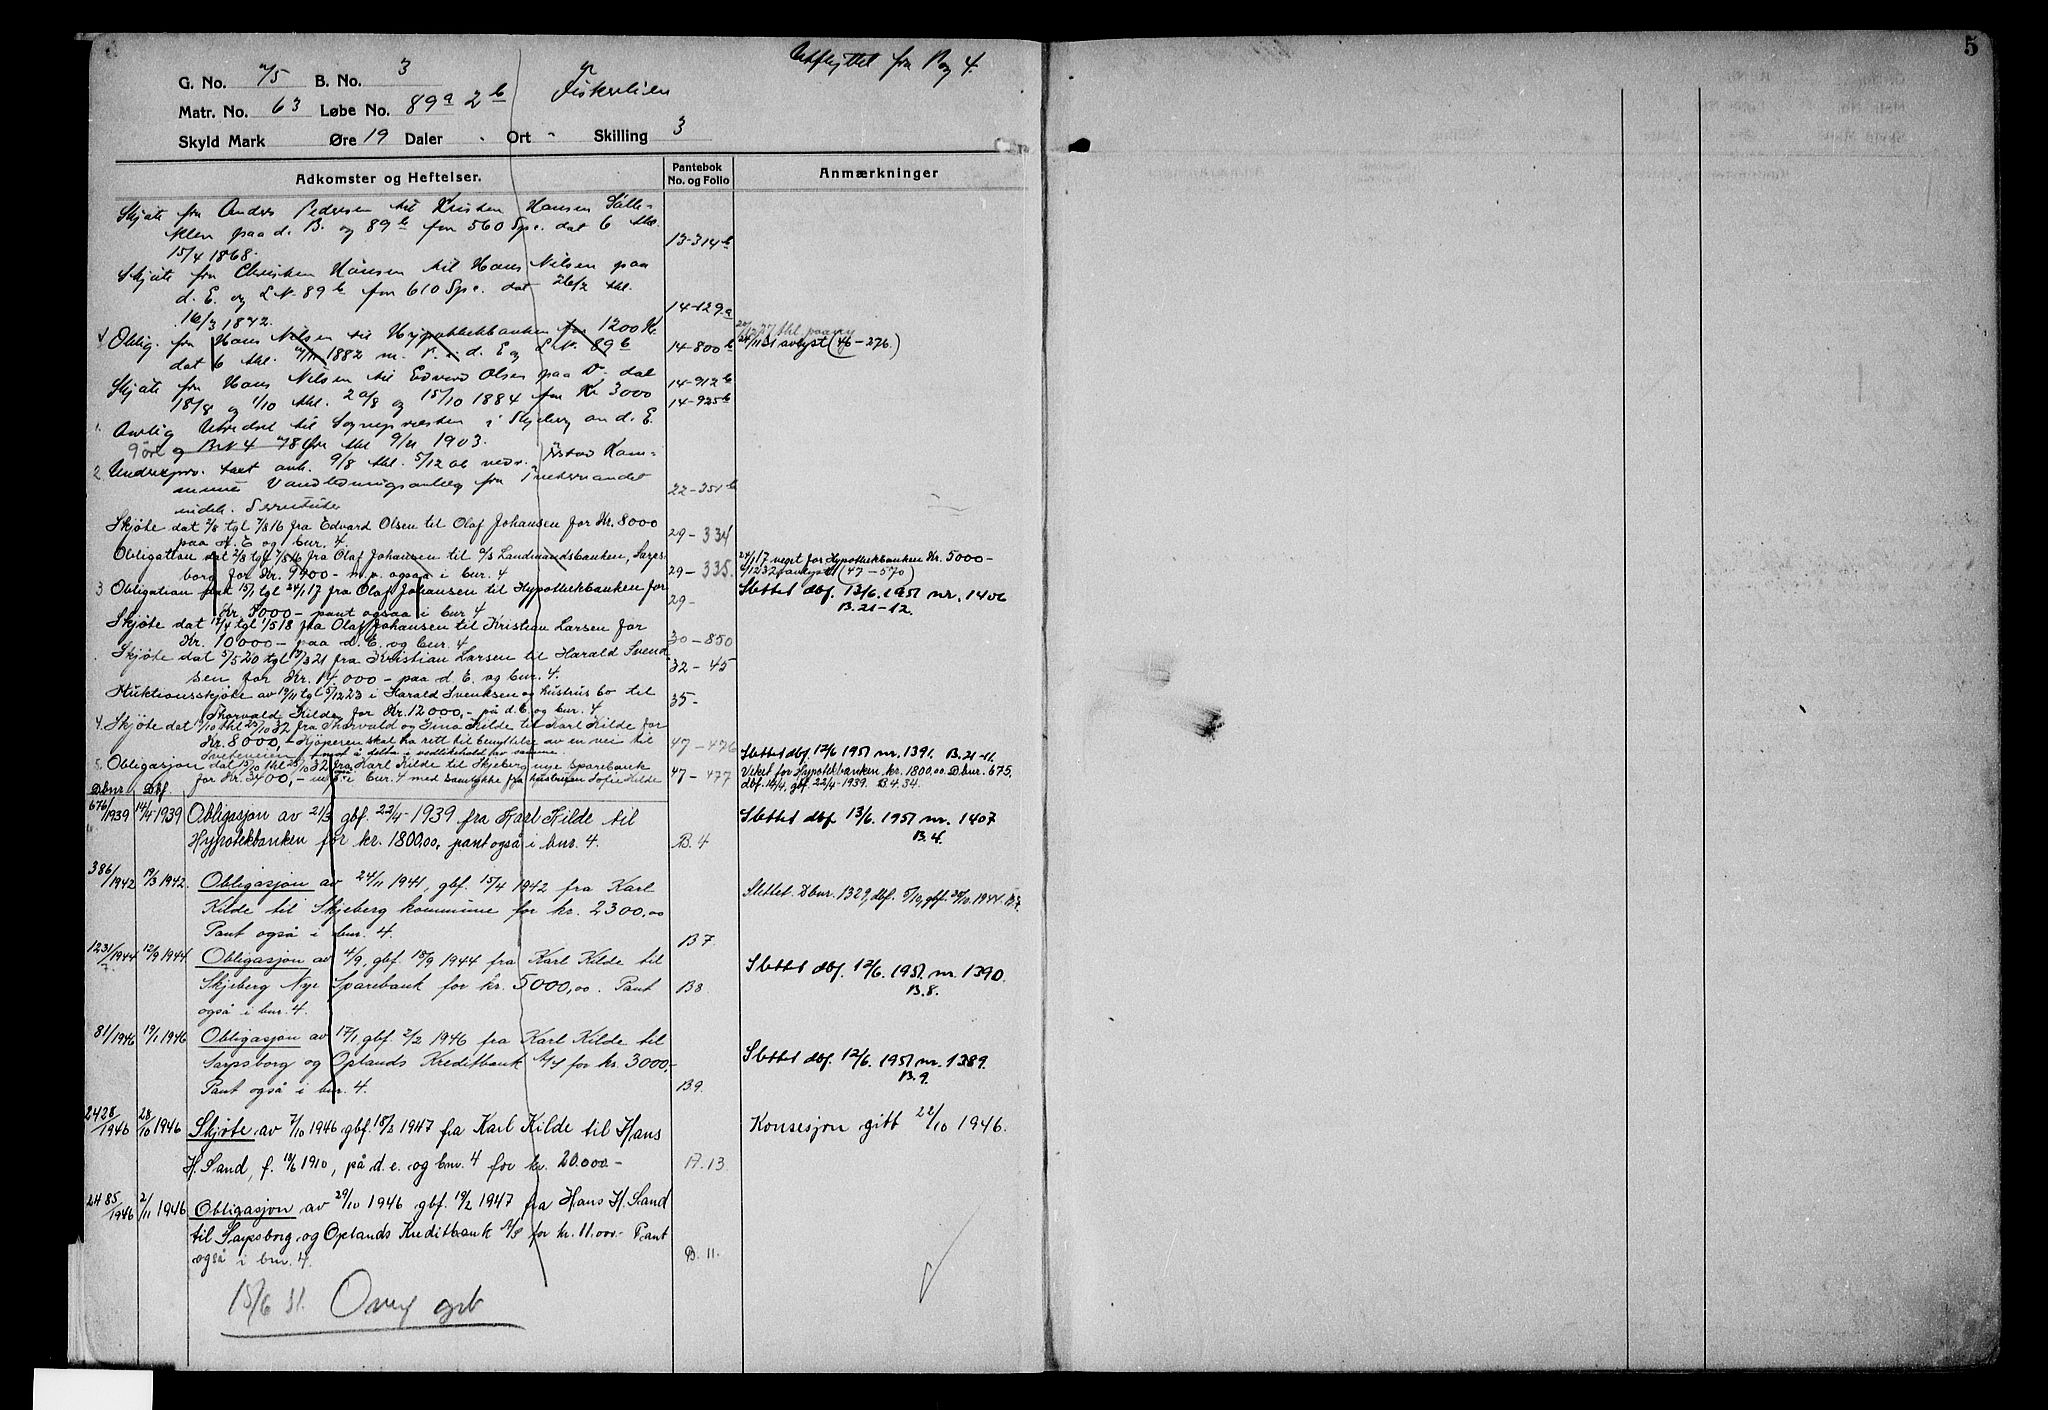 Utflyttet fra Pag 4.
5
G. No. 75 B. No. 3
Matr. No. 63 Løbe No. 89a 2b Fiskelien
Skyld Mark Øre 19 Daler - Ort - Skilling 3
Adkomster og Heftelser.
Pantebok No. og Folio
Anmærkninger
Skjøte fra Anders Pedersen til Kristen Hansen
paa d. B. og 89b for 560 Spd. dat 6 thl.
15/4 1868. 13-314b
Skjøte fra Christen Hansen til Hans Nilsen paa
d. E. og LN. 89b for 610 Spd. dat 26/2 thl.
16/3 1872. 14-129a
Oblig. fra Hans Nilsen til Hypothekbanken for 1200 Kr.
dat 6 thl. 1882 m. P. i d. E og LN. 89b 14-800b
avlyst (46-276.)
Skjøte fra Hans Nilsen til Edvard Olsen paa D. dat 14-912b
18/8 og 1/10 thl. 20/8 og 15/10 1884 for Kr 3000 14-925b
1. Aarlig Utredsel til Sognepresten i Skjeberg av d. E.
9 øre og BrN 4 78 Øre thl 9/11 1903.
2. Underexpro. taxt avh. 9/8 thl. 5/12 06 vedr. Kom-
munes Vandledningsanlæg fra
midl. Servitutter 22-351b
Skjøte dat 2/8 tgl 7/8 16 fra Edvard Olsen til Olaf Johansen for Kr. 8000
paa d. E og bnr. 4. 29-334
Obligation dat 2/8 tgl 7/8 16 fra Olaf Johansen til A/S Landmandsbanken, Sarps-
borg for Kr. 9400- m.p. ogsaa i bnr. 4 29-335.
24/1 17 veget for Hypothekbanken Kr. 5000-
avlyst (47-570)
3 Obligation dat 15/1 tgl 24/1 17 fra Olaf Johansen til Hypothekbanken for
Kr. 5000- pant ogsaa i bnr 4 29-
Slettet dbf. 13/6. 1951 nr. 1406
B. 21-12.
Skjøte dat 17/4 tgl 1/5 18 fra Olaf Johansen til Kristian Larsen for
Kr. 10000- paa d. E. og bnr. 4 30-850
Skjøte dat 5/5 20 tgl 3/3 21 fra Kristian Larsen til Harald Svend
sen for Kr. 14000- paa d. E. og bnr. 4. 32-45
Auktionsskjøte av 19/11 tgl 5/12 23 i Harald Svendsen og hustrus bo til
Thorvald Kilde for Kr. 12000,- på d. E og bnr. 4 35-
4. Skjøte dat 15/10 thl 25/10 32 fra Thorvald og Gina Kilde til Karl Kilde for
Kr. 8000,- Kjøperen skal ha rett til benyttelse av en vei til
mot å delta i vedlikehold av samme. 47-476
Slettet dbf. 12/6 1951 nr. 1391. B. 21-11.
5. Obligasjon dat 15/10 thl 25/10 32 fra Karl Kilde til Skjeberg nye Sparebank
for Kr. 3400,- m.p. i bnr. 4 med samtykke fra hustruen Sofie Kilde 47-477
Veket for Hypotekbanken kr. 1800,00. Dbnr. 675.
dbf. 14/4, gbf. 22/4-1939. B. 4. 34.
Dbnr Dbf.
676/1939 14/4 1939 Obligasjon av 21/3 gbf. 22/4-1939 fra Karl Kilde til
Hypotekbanken for kr. 1800,00, pant også i bnr. 4. B. 4
Slettet dbf 13/6. 1951 nr. 1407
B. 4.
386/1942 19/3 1942. Obligasjon av 24/11 1941, gbf. 15/4 1942 fra Karl
Kilde til Skjeberg kommune for kr. 2300,00
Pant også i bnr. 4. B 7.
Slettet. Dbnr. 1329, dbf. 5/10, gbf. 20/10. 1944. B 7.
1231/1944 12/9 1944 Obligasjon av 4/9, gbf. 18/9 1944 fra Karl Kilde til
Skjeberg Nye Sparebank for kr. 5000,00. Pant
også i bnr. 4. B 8.
Slettet dbf. 12/6. 1951. nr. 1390.
B. 8.
81/1946 19/1 1946 Obligasjon av 17/1 gbf. 2/2 1946 fra Karl Kilde til
Sarpsborg og Oplands Kreditbank A/S for kr. 3000,-
Pant også i bnr. 4. B 9.
Slettet dbf. 12/6. 1951 nr. 1389.
B. 9.
2428/1946 28/10 1946 Skjøte av 7/10 1946 gbf. 18/2 1947 fra Karl Kilde til Hans
H. Sand, f. 19/6 1910, på d. e. og bnr. 4 for kr. 20.000.- A. 13.
Konsesjon gitt 22/10 1946.
2485/1946 2/11 1946 Obligasjon av 29/10 1946 gbf. 19/2 1947 fra Hans H. Sand
til Sarpsborg og Oplands Kreditbank A/S for kr. 11.000.- Pant
også i bnr. 4. B. 11.
15/6 51.